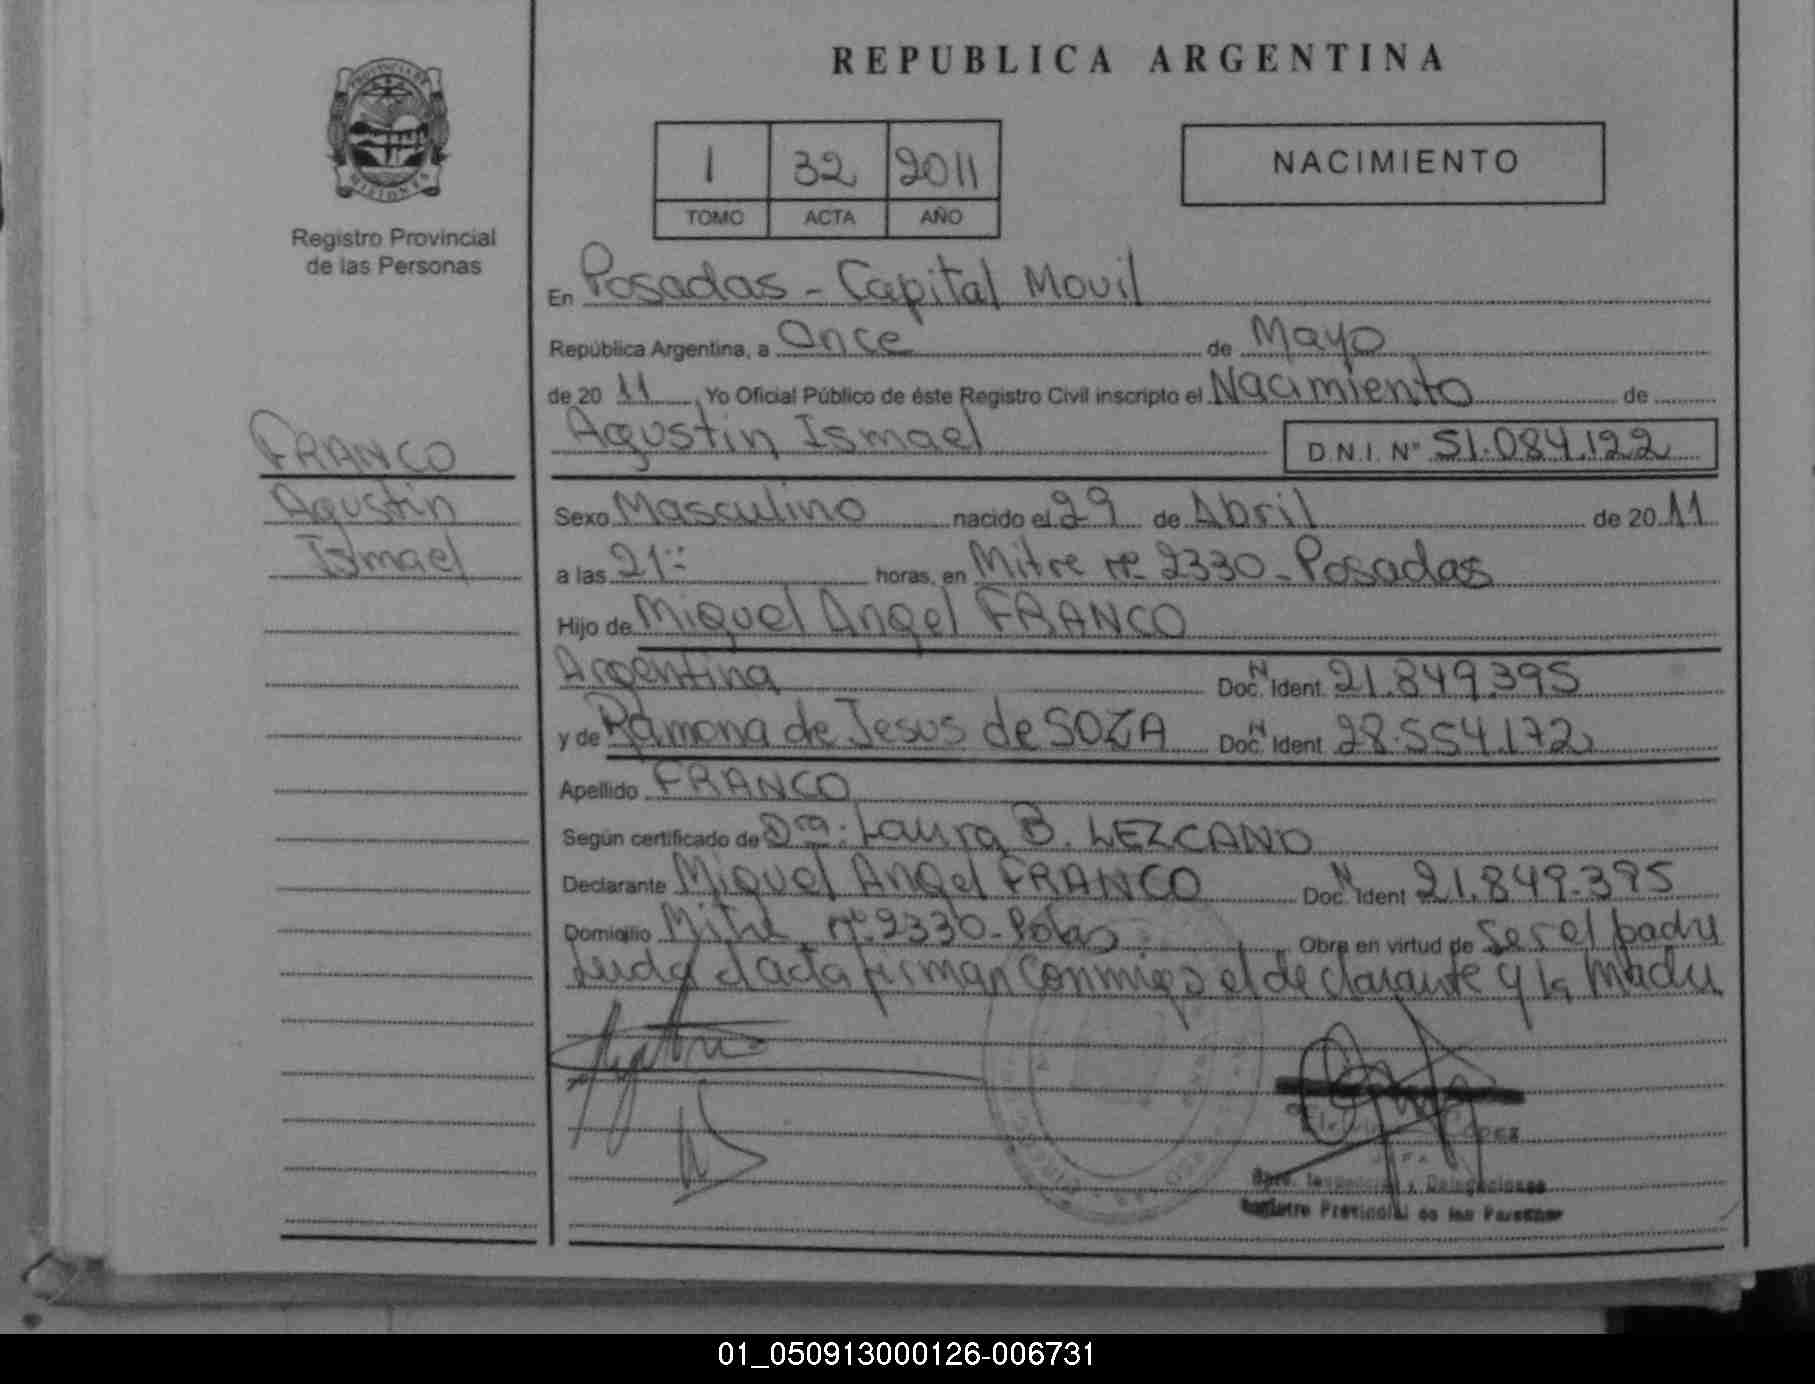 REPUBLICA ARGENTINA
PROVINCIA DE
MISIONES
Registro Provincial
de las Personas
1 32 2011
TOMO ACTA AÑO
NACIMIENTO
En Posadas - Capital Movil
República Argentina, a Once de Mayo
de 20 11, Yo Oficial Público de éste Registro Civil inscripto el Nacimiento de
Agustin Ismael D.N.I. Nº 51.084.122
FRANCO
Agustin
Ismael
Sexo Masculino nacido el 29 de Abril de 20 11
a las 21:: horas, en Mitre nº 2330 - Posadas
Hijo de Miguel Angel FRANCO
Argentina Doc. N Ident. 21.849.395
y de Ramona de Jesus de SOZA Doc. N Ident 28.554.172
Apellido FRANCO
Según certificado de Dra. Laura B. LEZCANO
Declarante Miguel Angel FRANCO Doc. N Ident 21.849.395
Domicilio Mitre nº 2330 - Pdas Obra en virtud de ser el padre
Leida el acta firman conmigo el declarante y la madre
LOPEZ
Registro Provincial de las Personas
01_050913000126-006731